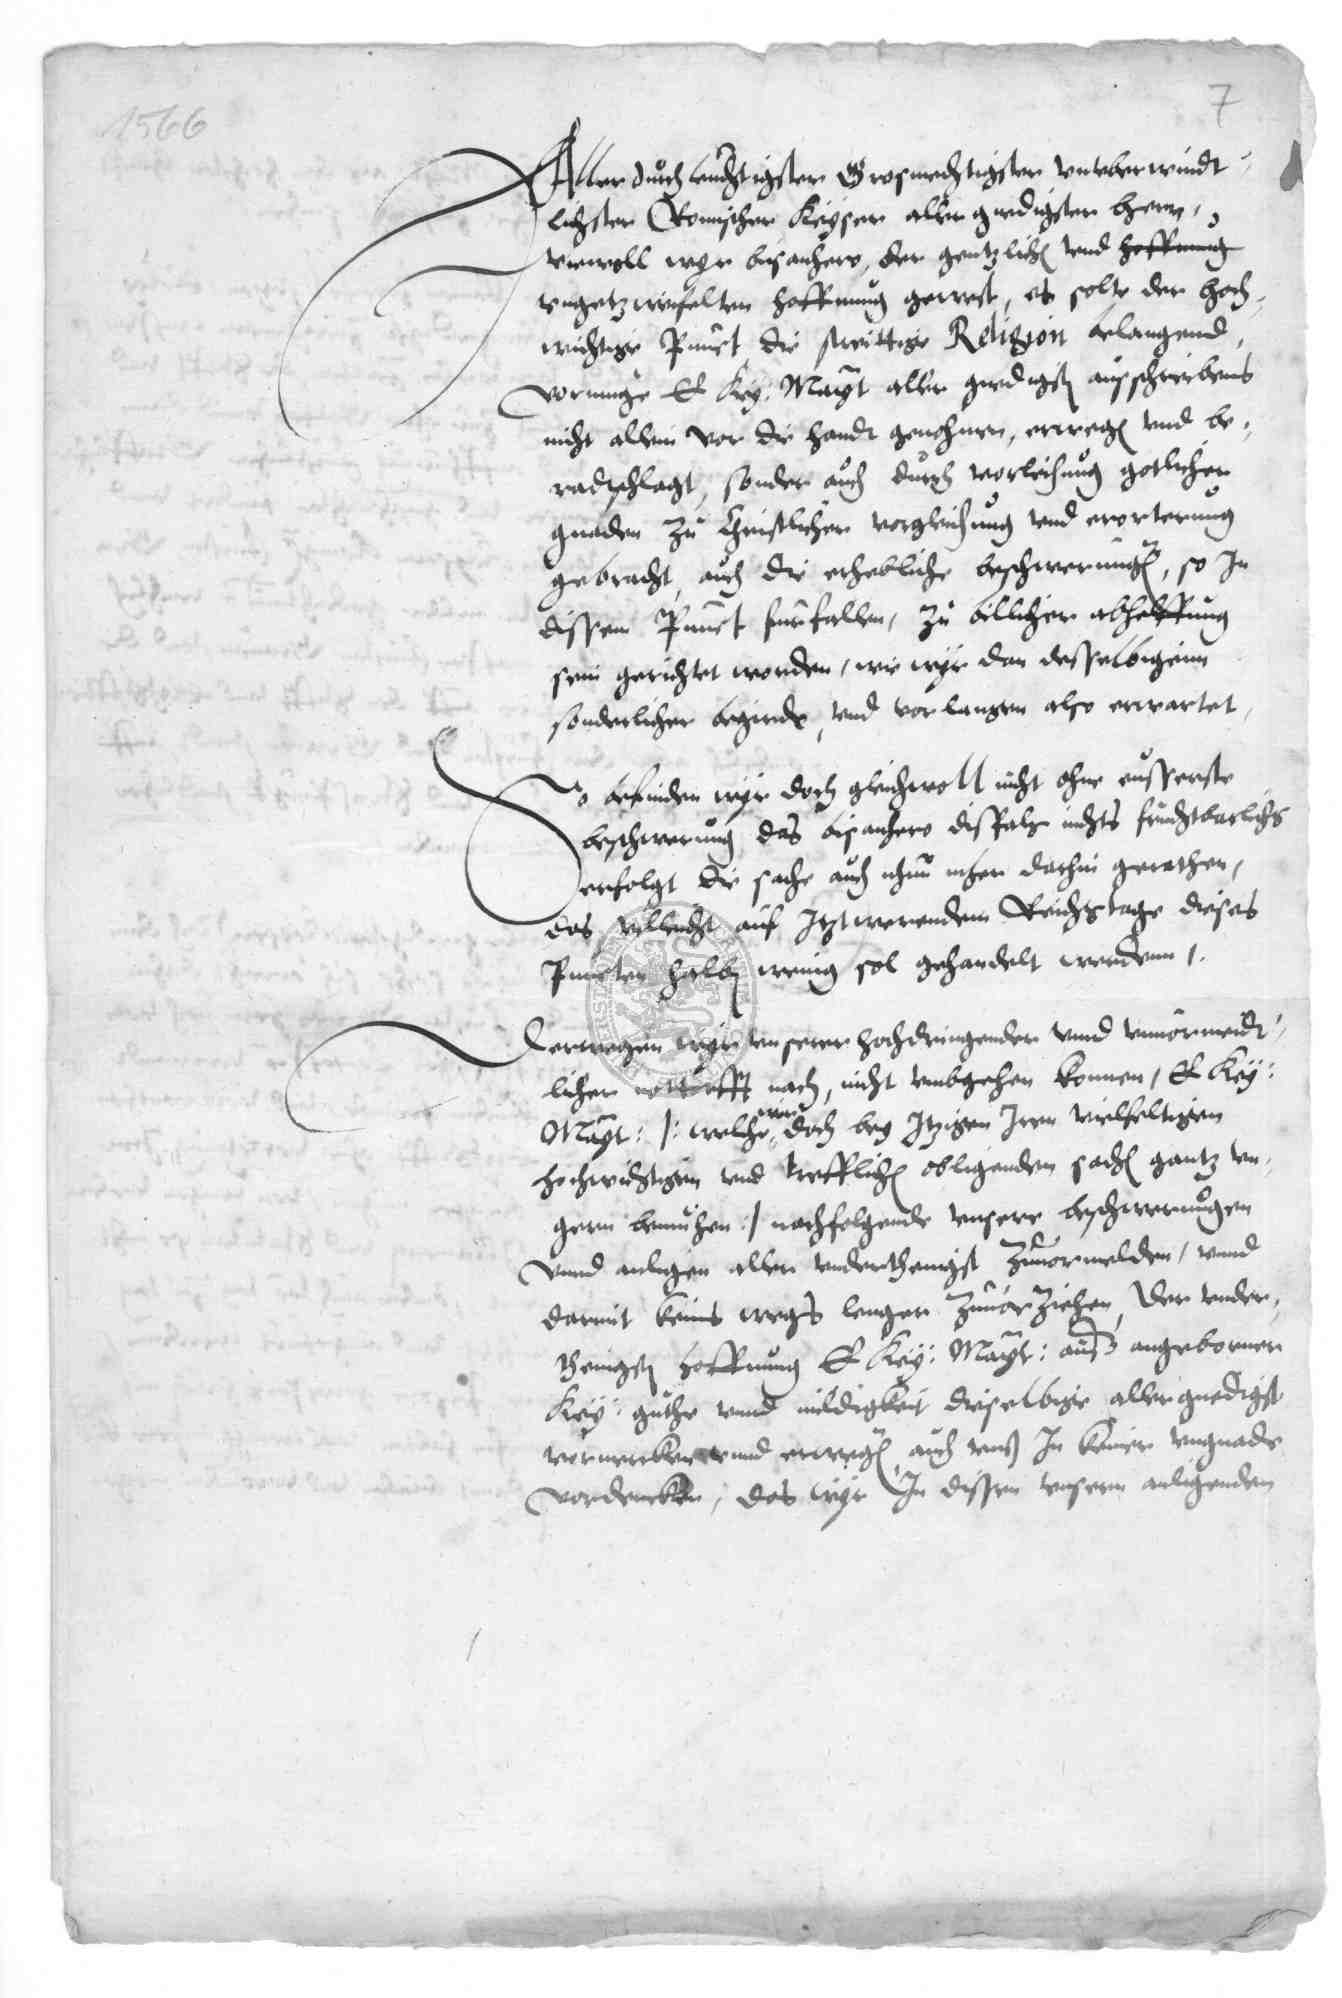 1566
7
Aller durchleuchtigster Grosmechtigster vnuberwindt-
lichster Romischer Keyser aller gnedigster herr,
wiewoll wyr bisanhero, der gentzlichen vnd hoffnung
vngetzweifelten hoffnung gewest, es solte der hoch-
wichtige Punct, die streittige Religion belangend,
vormuge E Key: Mayt aller gnedigsten ausschreibens
nicht allein vor die handt genohmen, erwegen vnd be-
radtschlagt, sonder auch durch vorleihung gotlicher
gnaden zu Christlicher vorgleichung vnd erorterung
gebracht, auch die erhebliche beschwerungen, so In
dissem Punct furfallen, zu billicher abhelffung
sein gerichtet worden, wie wyr dan desselbigenn
sonderlicher begirde, vnd vorlangen also erwartet,
So befinden wyr doch gleichwoll nicht ohne eusserste
beschwerung das bisanhero disfals nichts fruchtbarlichs
erfolgt die sache auch nhun mher dahin gerathen,
das villeicht auf Itzt werendem Reichstage dieses
Puncten halben wenig sol gehandelt werdenn /.
Derwegen wyr vnserer hochdringender vnnd vnuormeidt-
licher notturfft nach, nicht vmbgehen konnen, E Key:
Mayt: /: welche wir doch bey Itzigen Iren vielfeltigen
hochwichtigen vnd trefflichen obligenden sachen gantz vn-
gern bemuhen :/ nachfolgende vnsere beschwerungen
vnnd anligen aller vnderthenigst zuuormelden, vnnd
darmit keins wegs lenger zuuorziehen, der vnder-
thenigsten hoffnung E Key: Mayt: auss angeborner
Key: guthe vnnd mildigkeit dieselbige allergnedigst
vormercken vnnd erwegen, auch vnss In keiner vngnade
vordencken, das wyr In dissen vnsern anligenden